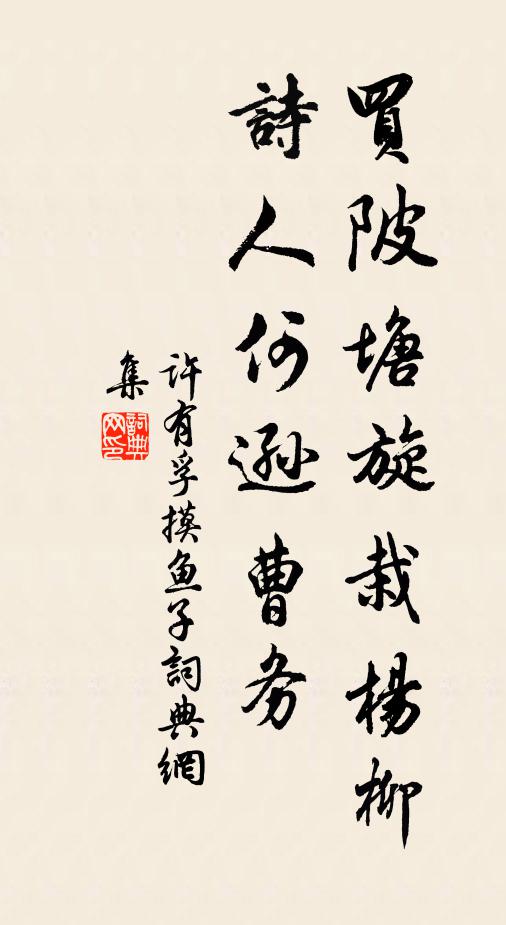 買陂塘旋栽楊柳
詩人何遜曹务
许有孚摸鱼子詞典網
集
詞典网印